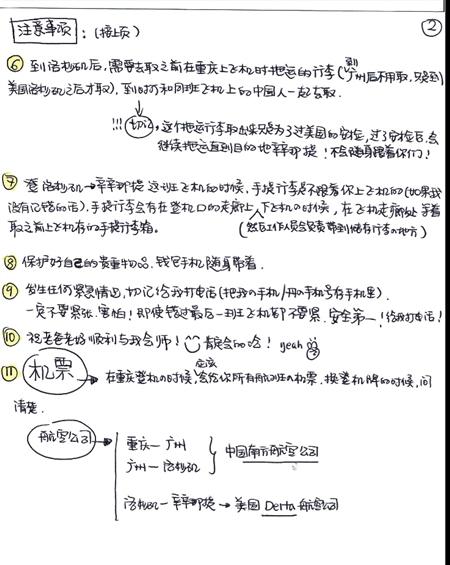 ②
注意事项：(接上页)
⑥ 到洛杉矶后，需要去取之前在重庆上飞机时托运的行李(到广州后不用取，只需到
美国洛杉矶之后才取)，到时可和同班飞机上的中国人一起去取.
!!! 切记，这个托运行李取出来只是为了过美国的安检，过了安检后，会
继续托运直到目的地辛辛那提！不会随身跟着你们！
⑦ 登洛杉矶→辛辛那提这班飞机的时候，手提行李是不跟着你上飞机的(如果我
没有记错的话)，手提行李会有在登机口的走廊上，下飞机的时候，在飞机走廊处等着
取之前上飞机存的手提行李箱.
(然后工作人员会负责带到储存行李的地方)
⑧ 保护好自己的贵重物品，钱包手机随身带着.
⑨ 发生任何紧急情况，切记给我打电话(把我的手机/ 的手机号存手机里).
一定不要紧张，害怕！即使错过最后一班飞机都不要紧，安全第一！给我打电话！
⑩ 祝老爸老妈顺利与我会师！ 肯定会的哈！ yeah
⑪ 机票 → 在重庆登机的时候，应该会给你所有航班的机票，换登机牌的时候，问
清楚.
航空公司
重庆—广州
广州—洛杉矶
中国南方航空公司
洛杉矶—辛辛那提→美国Delta航空公司